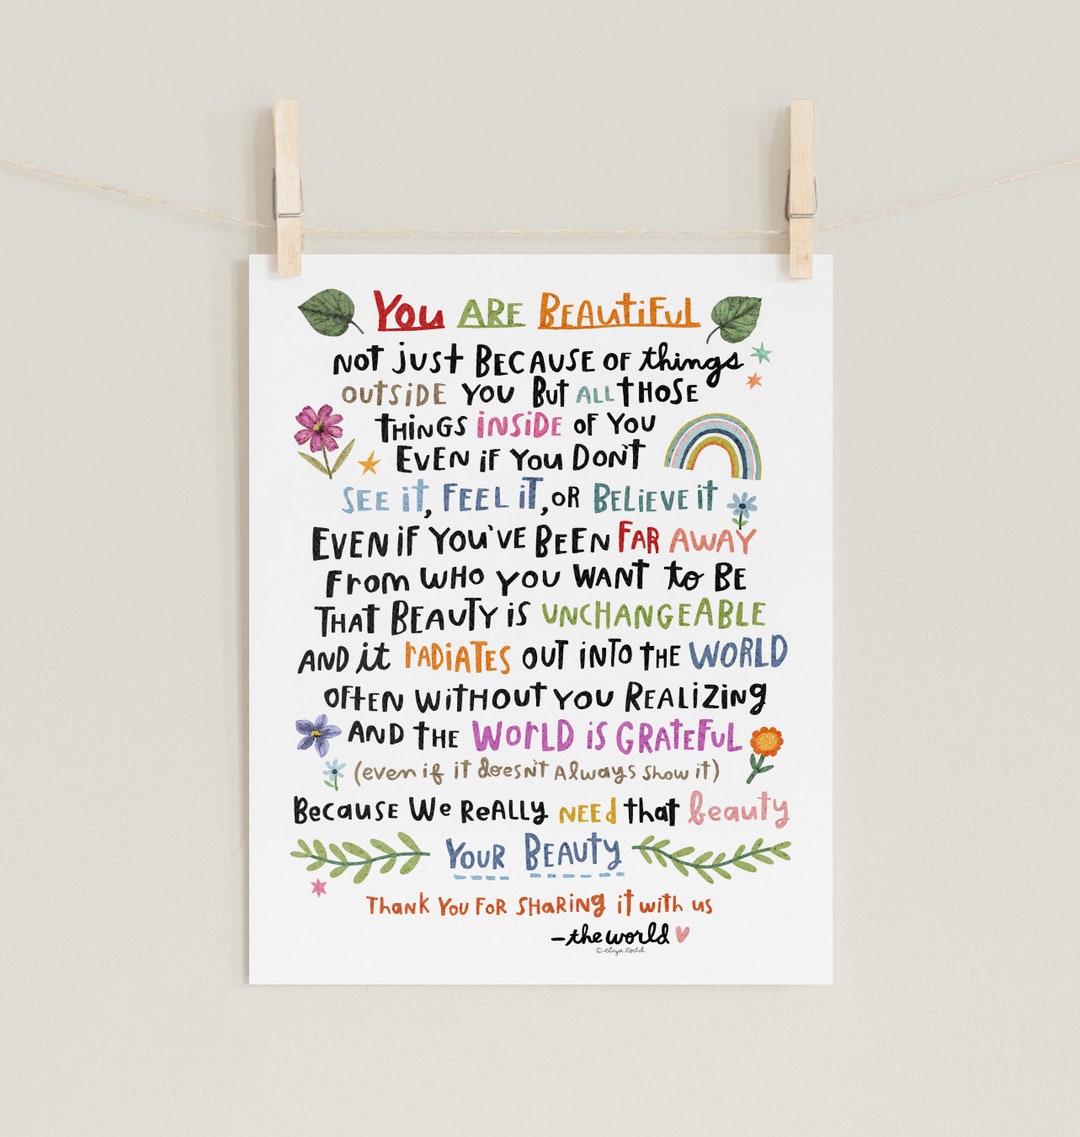 YOU ARE BEAUTIFUL
NOT just BECAUSE OF things
OUTSIDE YOU BUT ALL THOSE
THINGS INSIDE OF YOU
EVEN IF YOU DON'T
SEE IT, FEEL IT, OR BELIEVE IT
EVEN IF YOU'VE BEEN FAR AWAY
From WHO YOU WANT to BE
THAT BEAUTY IS UNCHANGEABLE
AND it RADIATES OUT INTO THE WORLD
OFTEN WITHOUT YOU REALIZING
AND THE WORLD IS GRATEFUL
(even if it doesn't Always show it)
Because We ReALLy NEEd that beauty
YOUR BEAUTY
THANK YOU FOR SHARING it with us
-the world
©eliza todd